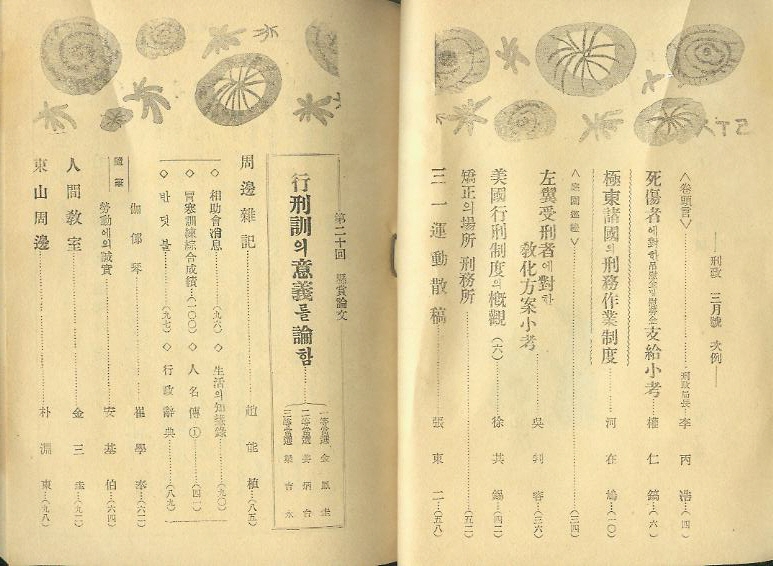 ── 刑政 三月號 次例 ──
〈卷頭言〉………刑政局長 李丙浩…(四)
死傷者에對한弔慰金및慰勞金支給小考…權仁鎬…(六)
極東諸國의刑務作業制度………河在鳩…(一〇)
………(三四)
左翼受刑者에對한
敎化方案小考………吳判容…(三六)
美國行刑制度의槪觀(六)………徐其錫…(四二)
矯正의場所 刑務所………(五二)
三一運動散稿………張東二…(五八)
第二十回 懸賞論文
行刑訓의意義를論함………
一等當選 金鳳圭
二等當選 姜炳台
三等當選 梁吉永
周邊雜記………趙能植…(八五)
◇ 相助會消息………(九六)
◇ 生活의知識錄………(九〇)
◇ 冒寒訓練綜合成績…(一〇〇)
◇ 人名傳①………(四一)
◇ 반딧불………(九七)
◇ 行政辭典………(八九)
隨筆
伽倻琴………崔學奉…(六二)
勞動에의誠實………安基伯…(六四)
人間敎室………金三圭…(九二)
東山周邊………朴淵東…(九八)